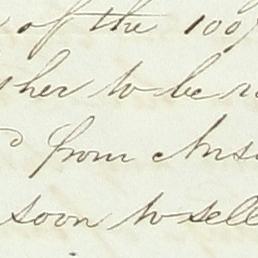 of the 100
her to be
from
soon to sell